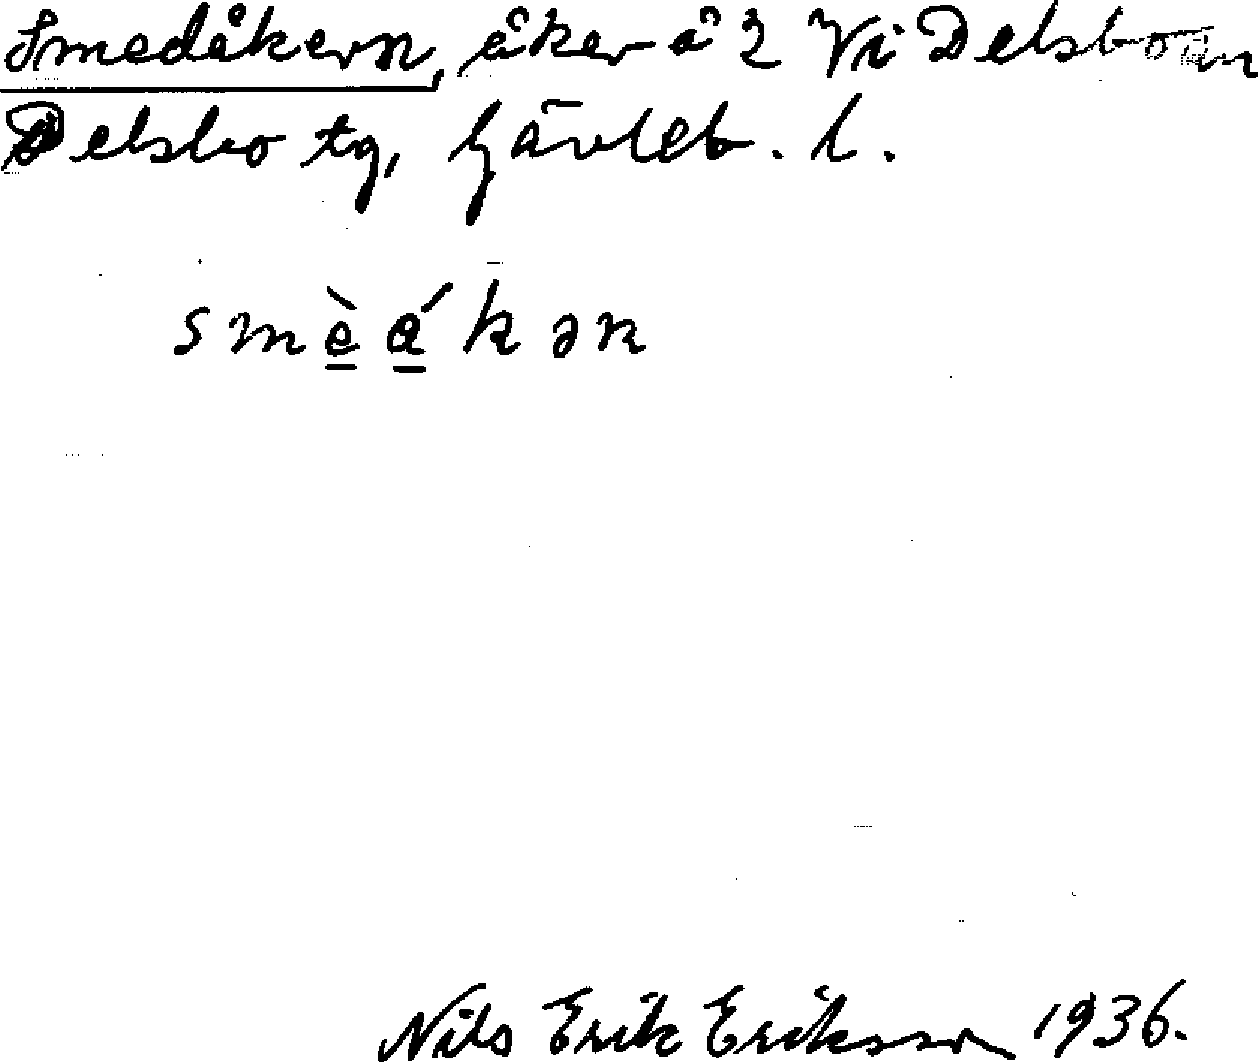 Smedåkern, åker å 2 Vi Delsboån
Delsbo tg, Gävleb. l.
smè̱á̱kən
Nils Erik Eriksson 1936.